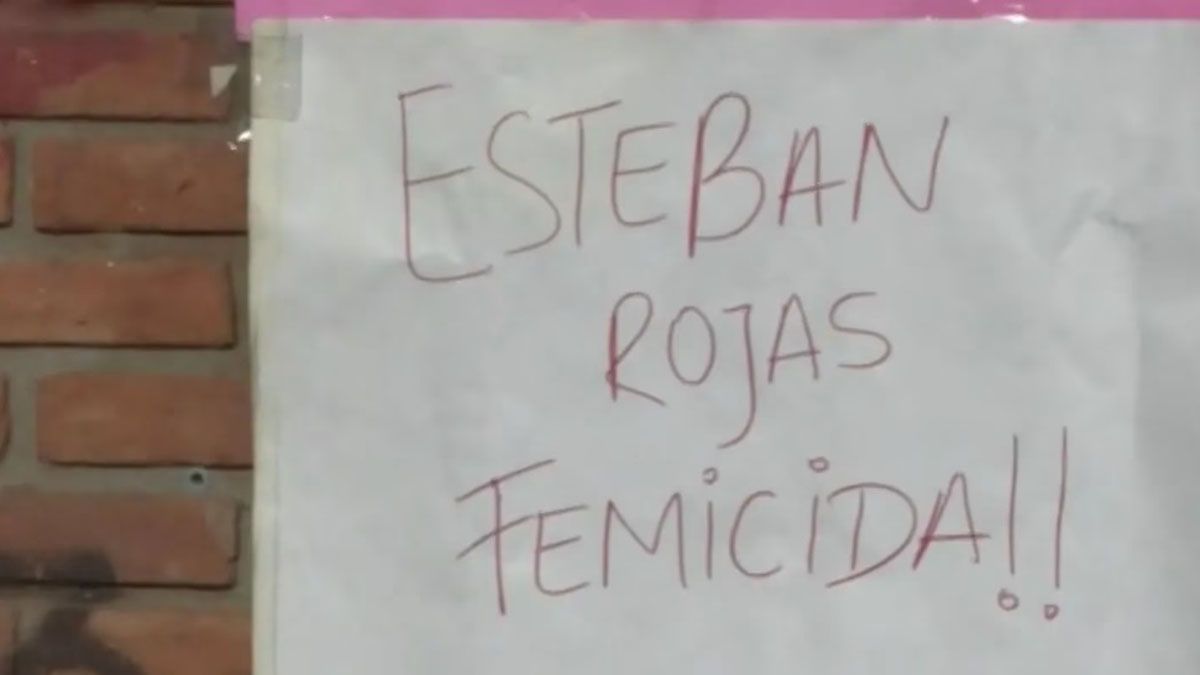 ESTEBAN
ROJAS
FEMICIDA!!